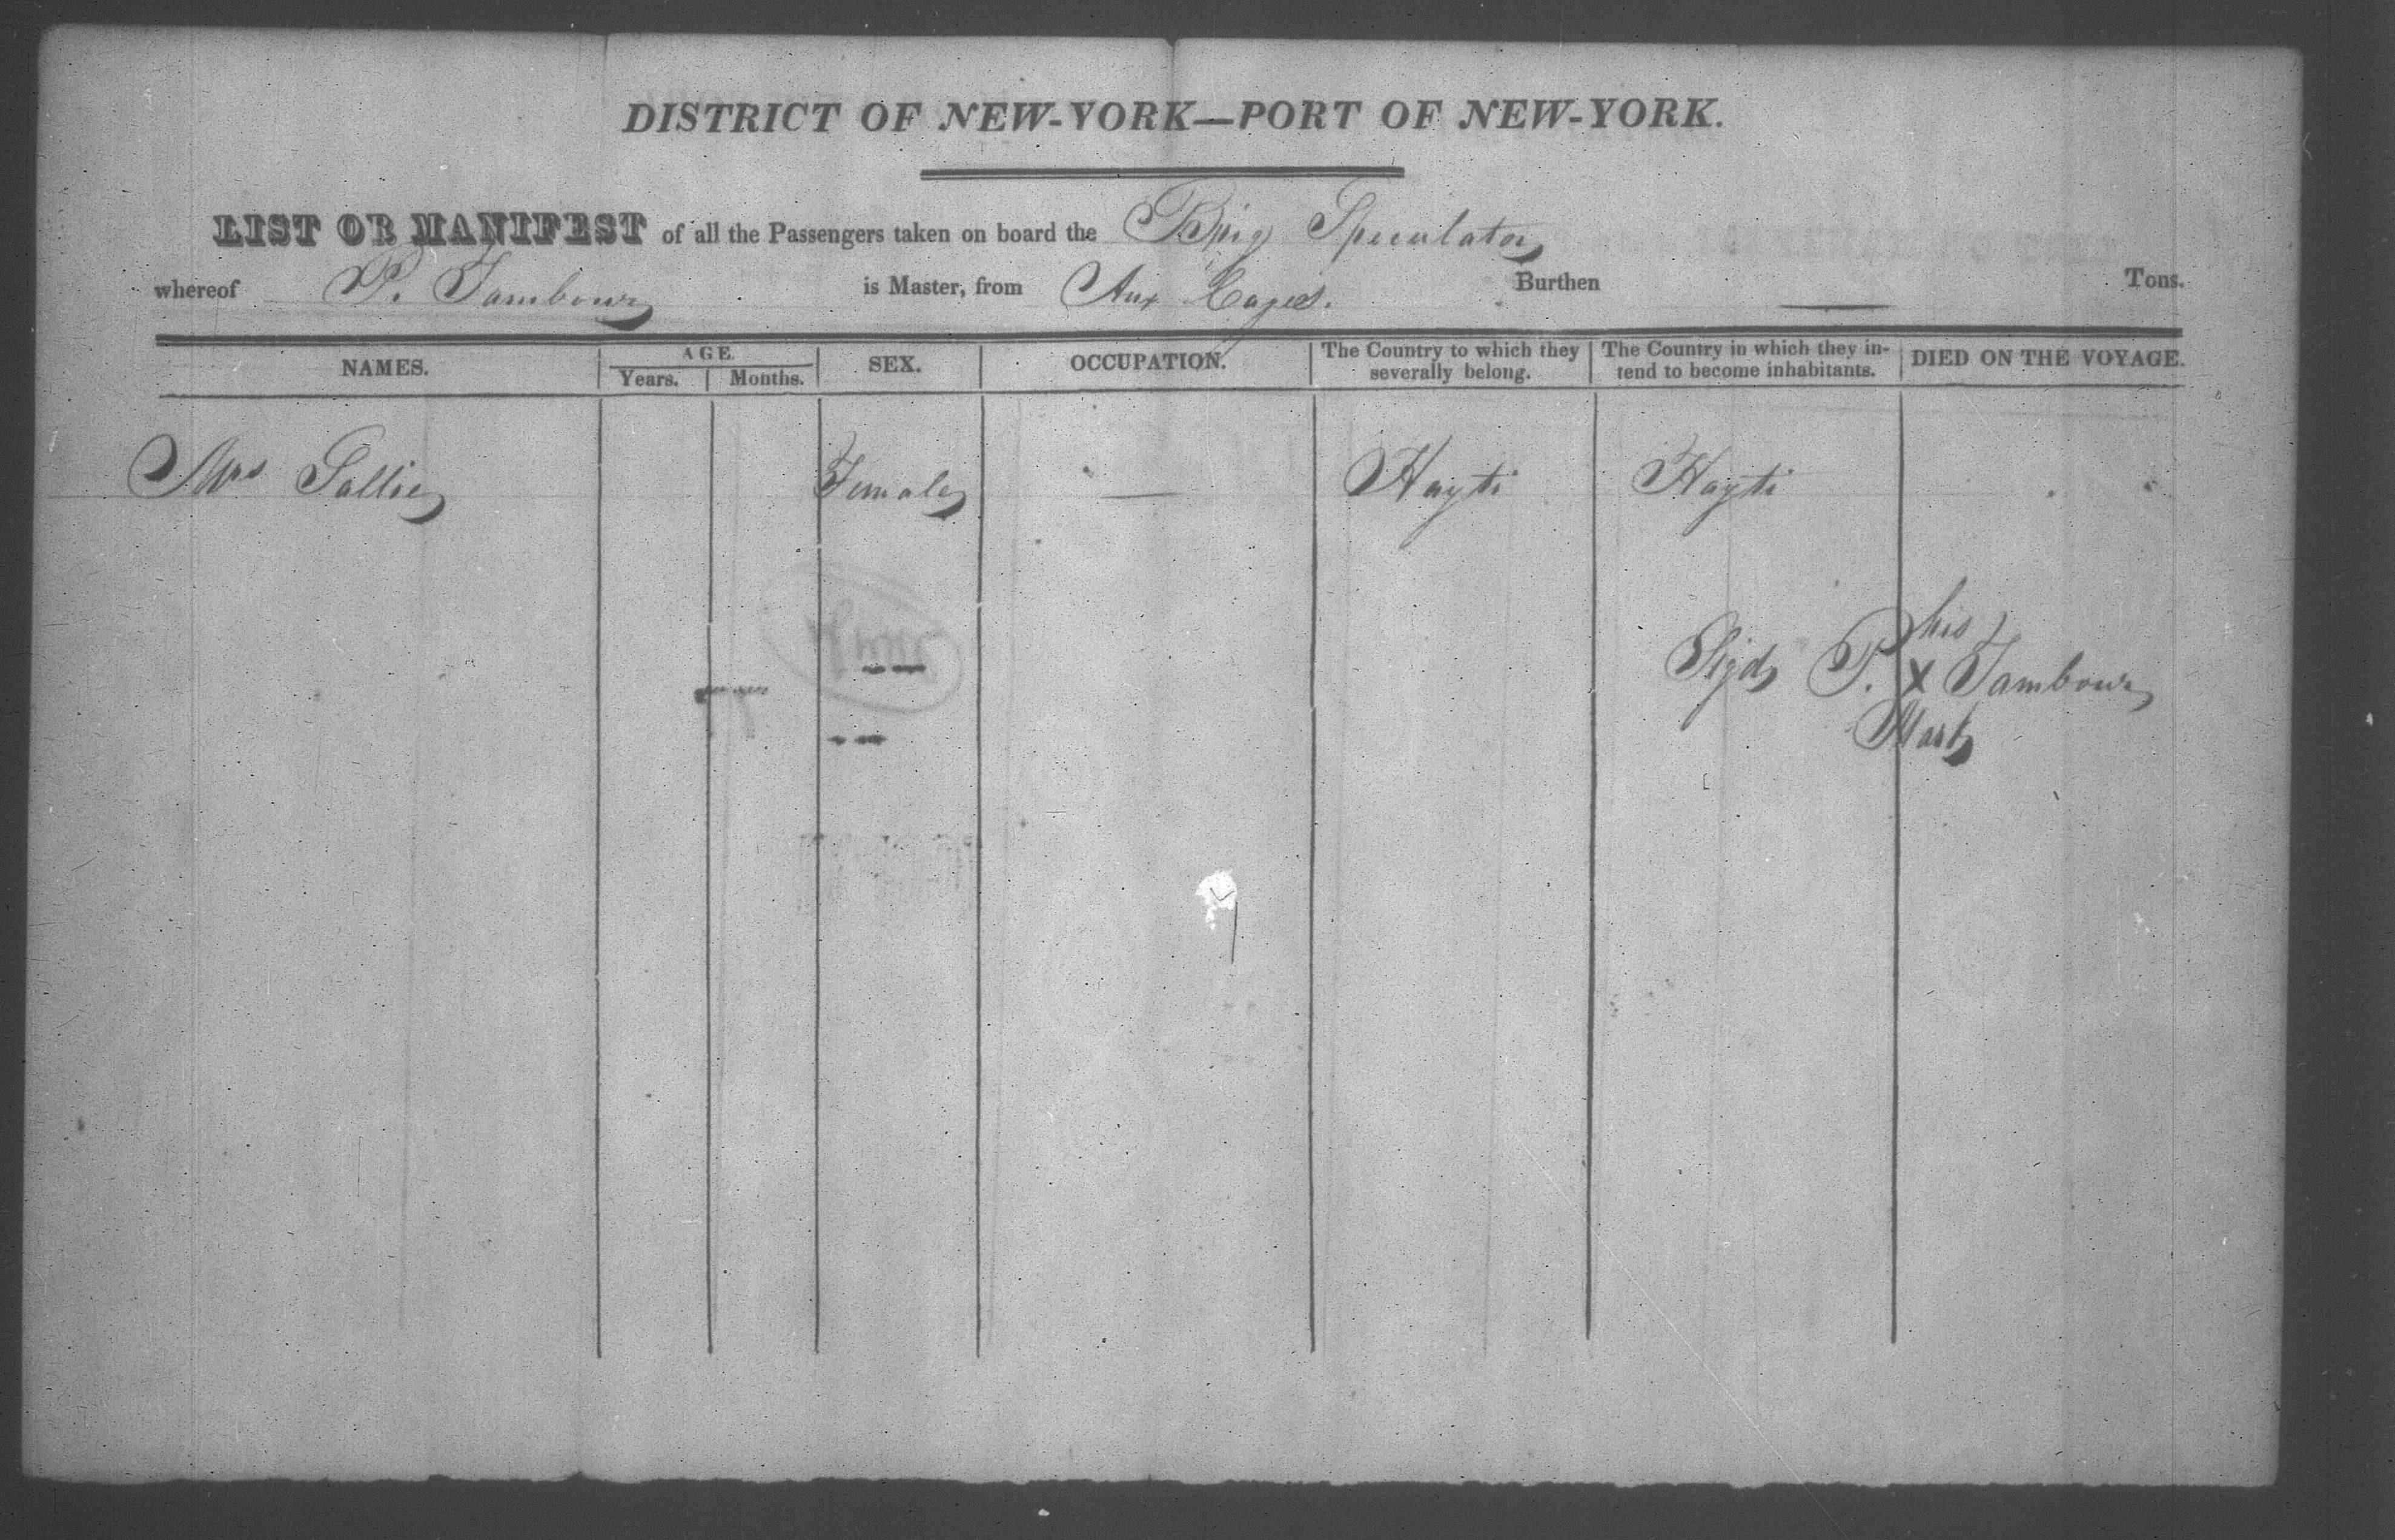 DISTRICT OF NEW-YORK—PORT OF NEW-YORK.
LIST OR MANIFEST of all the Passengers taken on board the Brig Speculator
whereof P. Tambour is Master, from Aux Cayes. Burthen — Tons.
NAMES. AGE. Years. Months. SEX. OCCUPATION. The Country to which they severally belong. The Country in which they intend to become inhabitants. DIED ON THE VOYAGE.
Mrs Sallie Female — Hayti Hayti
his
Sigd P. X Tambour
Mark